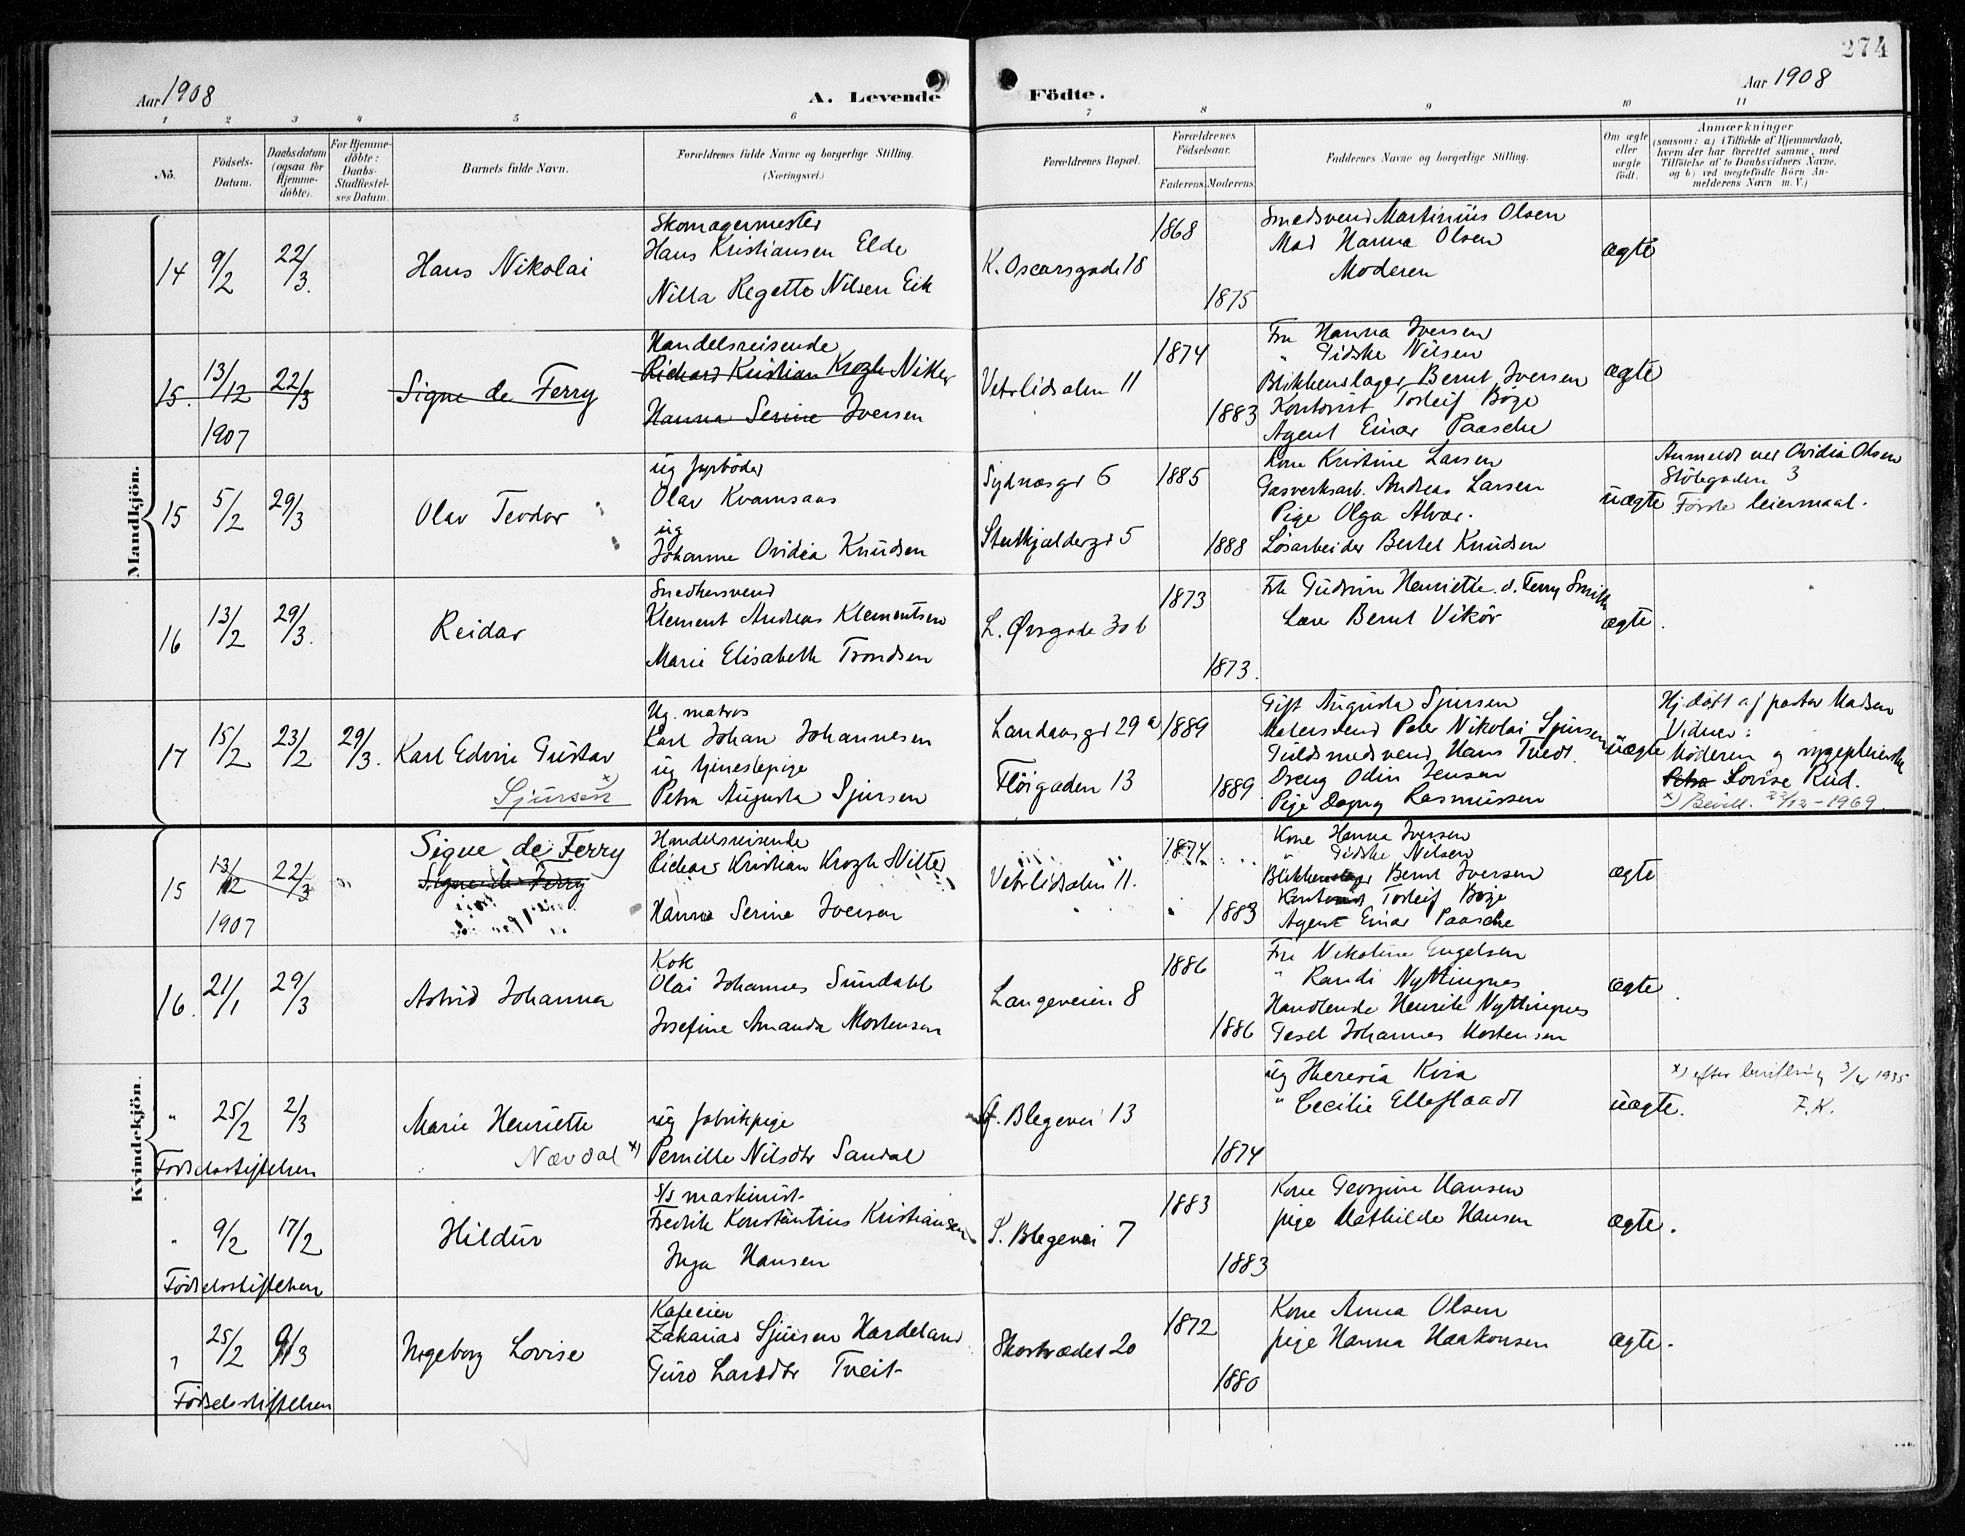 274
Aar 1908
A. Levende Födte.
Aar 1908
1 2 3 4 5 6 7 8 9 10 11
No.
Födsels-Datum.
Daabsdatum (ogsaa for Hjemme-döbte).
For Hjemme-döbte: Daabs-Stadfæstel-ses Datum.
Barnets fulde Navn.
Forældrenes fulde Navne og borgerlige Stilling.
(Næringsvei.)
Forældrenes Bopæl.
Forældrenes Födselsaar.
Faderens Moderens
Faddernes Navne og borgerlige Stilling.
Om ægte eller uægte født.
Anmærkninger
(saasom: a) i Tilfælde af Hjemmedaab, hvem der har forrettet samme, med Tilföielse af to Daabsvidners Navne, og b) ved uægtefödte Börn An-melderens Navn m. V.)
Mandkjön.
14 9/2 22/3. Hans Nikolai
Skomagermester
Hans Kristiansen Elde
Nilla Regette Nilsen Eik
K. Oscarsgade 18
1868
1875
Smedsvend Martinius Olsen
Mad Hanna Olsen
Moderen
ægte
15. 13/12 22/3 Signe de Ferry
1907
Handelsreisende
Rickard Kristian Krogh Nitter
Hanna Serine Iversen
Vetrlidsalm 11
1874
1883
Fru Hanna Iversen
" Gidske Nilsen
Blikkenslager Bernt Iversen
Kontorist Torleif Böje
Agent Einar Paasche
ægte
15 5/2 29/3 Olav Teodor
ug fyrböder
Olav Kvamsaas
ug
Johanne Ovidia Knudsen
Sydnæsgd 6
Stenkjeldergd 5
1885
1888
Kone Kristine Larsen
Gasverksarb. Andreas Larsen
Pige Olga Alvær.
Lösarbeider Bertel Knudsen
uægte
Anmeldt ved Ovidia Olsen
Stölegaden 3
Förste leiermaal.
16 13/2 29/3. Reidar
Snedkersvend
Klement Andreas Klementsen
Marie Elisabeth Trondsen
L. Øvregade 30 b
1873
1873.
Frk Gudrun Henriette d. Ferry Smith
Lære Bernt Vikör
ægte.
17 15/2 23/2 29/3. Karl Edvin Gustav
Sjursen x)
Ug. matros
Karl Johan Johannesen
ug tjenestepige
Petra Augusta Sjursen
Landaasgd 29 a
Flöigaden 13
1889
1889
Gift Augusta Sjursen
Malersvend Peder Nikolai Sjursen
Guldsmedsvend Hans Tvedt.
Dreng Odin Jensen
Pige Dagny Rasmussen
uægte
Hj.döbt af pastor Madsen
Vidner:
Moderen og sygepleierske
Petra Lovise Rud.
x) Bevill. 23/12-1969
Kvindekjön.
15 13/12 22/3 Signe de Ferry
Signe de Ferry
1907
Handelsreisende
Rickard Kristian Krogh Nitter
Hanna Serine Iversen
Vetrlidsalm 11.
1874
1883
Kone Hanna Iversen
" Gidske Nilsen
Blikkenslager Bernt Iversen
Kontorist Torleif Böje
Agent Einar Paasche
ægte
16. 21/1 29/3 Astrid Johanna
Kok
Olai Johannes Sundahl
Josefine Amanda Mortensen
Langeveien 8
1886
1886
Fru Nikoline Engelsen
" Randi Nyttingnes
Handlende Henrik Nyttingnes
Gesel Johannes Mortensen
ægte.
" 25/2 2/3 Marie Henriette
Nævdal x)
Födselsstiftelsen
ug fabrikpige
Pernille Nilsdtr Sandal
Blegevei 13
1874
ug Theresia Kira
" Cecilie Elleflaadt
uægte.
x) efter bevilling 3/4 1935
F.K.
" 9/2 17/2 Hildur
Födselsstiftelsen
S/S maskinist
Fredrik Konstantius Kristiansen
Inga Hansen
S. Blegevei 7
1883
1883
Kone Georgine Hansen
pige Mathilde Hansen
ægte.
" 25/2 9/3 Ingeborg Lovise
Födselsstiftelsen
Kafeeier
Zakarias Sjursen Hardeland
Guro Larsdtr Tveit
Skostrædet 20
1872
1880
Kone Anna Olsen
pige Hanna Haakonsen
ægte.